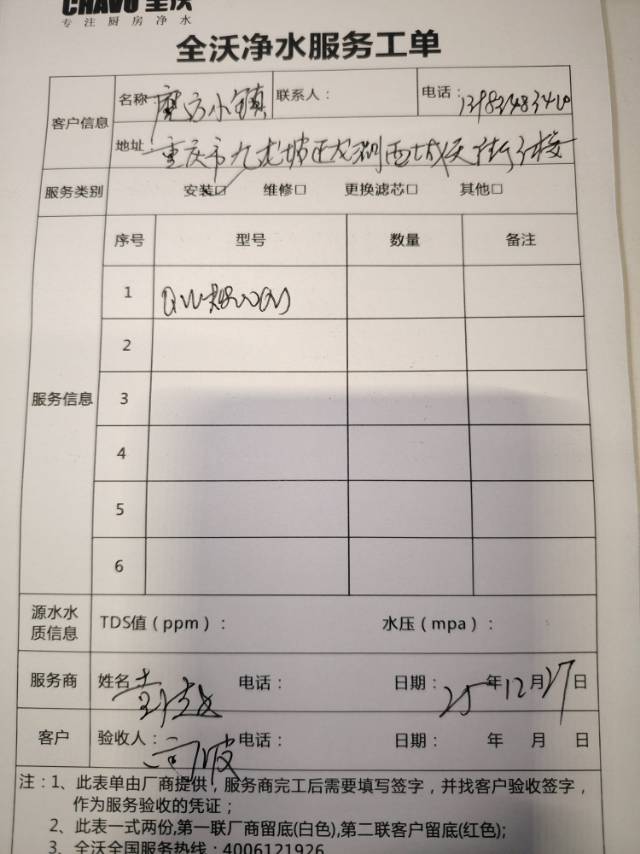 CHAVO 全沃
专注厨房净水
全沃净水服务工单
客户信息 名称 魔方小镇 联系人： 电话：
地址： 重庆市九龙坡区龙湖西城天街
服务类别 安装☑ 维修□ 更换滤芯□ 其他□
服务信息 序号 型号 数量 备注
1
2
3
4
5
6
源水水质信息 TDS值（ppm）： 水压（mpa）：
服务商 姓名 电话： 日期： 25 年 12 月 27 日
客户 验收人： 电话： 日期： 年 月 日
注：1、此表单由厂商提供，服务商完工后需要填写签字，并找客户验收签字，
作为服务验收的凭证；
2、此表一式两份,第一联厂商留底(白色),第二联客户留底(红色);
3、全沃全国服务热线：4006121926